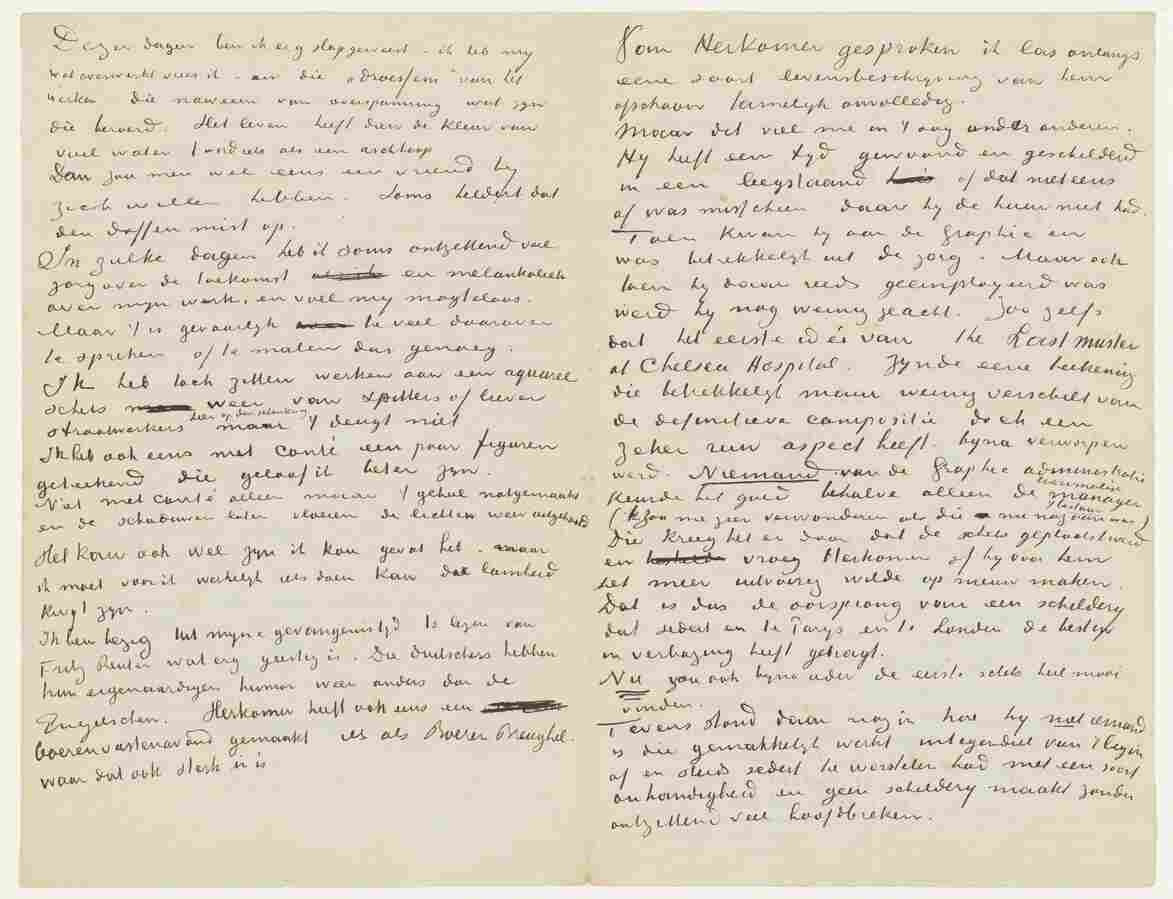 Dezer dagen ben ik erg slap geweest – ik heb my
wat overwerkt vrees ik – en die „droesem" van het
werken die naween van overspanning wat zyn
die beroerd. Het leven heeft dan de kleur van
vuil water 't wordt iets als een aschhoop
Dan zou men wel eens een vriend by
zich willen hebben. Soms heldert dat
den doffen mist op.
In zulke dagen heb ik soms ontzettend veel
zorg over de toekomst en melankoliek
over myn werk, en voel my magteloos.
Maar 't is gevaarlyk te veel daarover
te spreken of te malen dus genoeg.
Ik heb toch zitten werken aan een aquarel
schets weer van spitters of liever
straatwerkers hier op den maar 't deugt niet
Ik heb ook eens met conté een paar figuren
geteekend die geloof ik beter zyn.
Niet met conté alleen maar 't geheel natgemaakt
en de schaduwen laten vloeien de lichten weer uitgehaald
Het kan ook wel zyn ik kou gevat heb. maar
ik moet vooruit werkelyk iets doen kan dat lamheid
kwyt zyn.
Ik ben bezig Ut myne gevangenistyd te lezen van
Fritz Reuter wat erg geestig is. Die Duitschers hebben
hun eigenaardigen humor weer anders dan de
Engelschen. Herkomer heeft ook eens een
boerenvastenavond gemaakt iets als Boeren Breughel.
waar dat ook sterk in is
Van Herkomer gesproken ik las onlangs
eene soort levensbeschryving van hem
ofschoon tamelyk onvolledig.
Maar dit viel me in 't oog onder anderen.
Hy heeft een tyd gewoond en geschilderd
in een leegstaand huis of dat niet eens
of was misschien daar hy de huur niet had.
Toen kwam hy aan de Graphic en
was betrekkelyk uit de zorg. Maar ook
toen hy daar reeds geëmployeerd was
werd hy nog weinig geacht. Zoo zelfs
dat het eerste idée van the Last muster
at Chelsea Hospital. Zynde eene teekening
die betrekkelyk maar weinig verschilt van
de definitieve compositie doch een
zeker ruw aspect heeft. byna verworpen
werd. Niemand van de Graphic administratie
keurde het goed behalve alleen de toenmalige manager
(ik zou me zeer verwonderen als die manager nog daar was)
Die kreeg het er door dat de schets geplaatst werd
en vroeg Herkomer of hy voor hem
het meer uitvoerig wilde op nieuw maken.
Dat is dus de oorsprong van een schildery
dat sedert en te Parys en te Londen de besten
in verbazing heeft gebragt.
Nu zou ook byna ieder de eerste schets heel mooi
vinden.
Tevens stond daar nog in hoe hy niet iemand
is die gemakkelyk werkt integendeel van 't begin
af en steeds sedert te worstelen had met een soort
onhandigheid en geen schildery maakt zonder
ontzettend veel hoofdbreken.